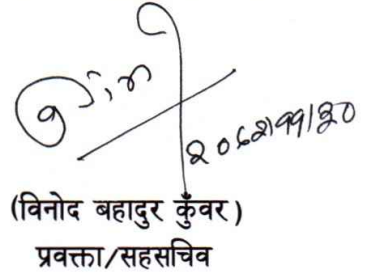 २०८२।११।३०
(विनोद बहादुर कुँवर)
प्रवक्ता/सहसचिव